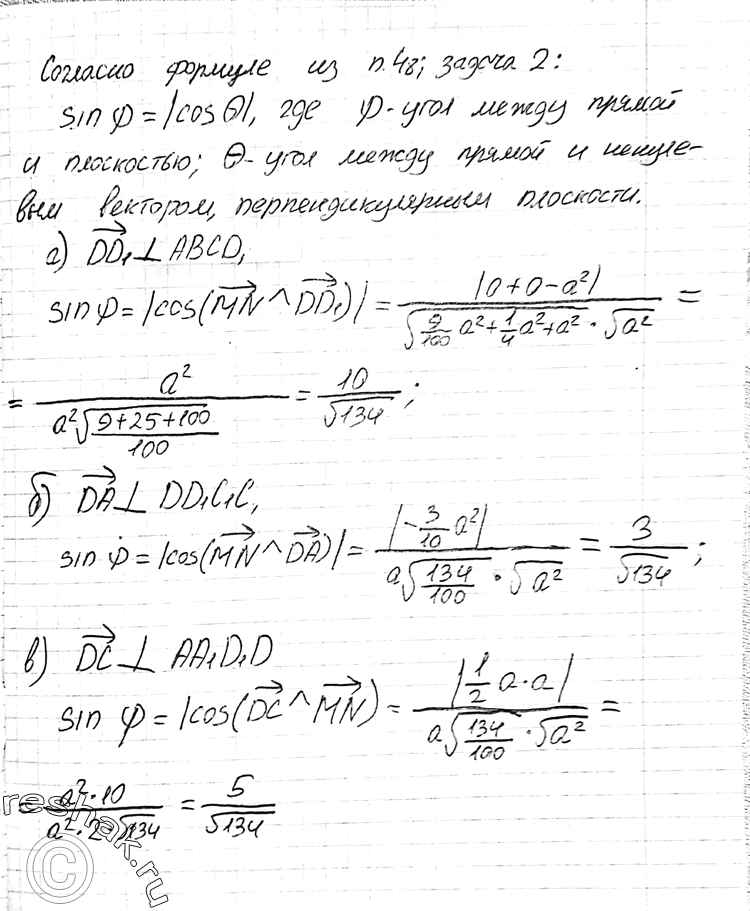 Согласно формуле из п.48; задача 2:
sin φ = |cos θ|, где φ - угол между прямой
и плоскостью; θ - угол между прямой и ненуле-
вым вектором, перпендикулярным плоскости.
а) DD₁→ ⊥ ABCD,
sin φ = |cos(MN→ ^ DD₁→)| = |0+0-a²| / (√(9/100 a² + 1/4 a² + a²) · √a²) =
= a² / (a²√((9+25+100)/100)) = 10/√134;
б) DA→ ⊥ DD₁C₁C,
sin φ = |cos(MN→ ^ DA→)| = |-3/10 a²| / (a√(134/100) · √a²) = 3/√134;
в) DC→ ⊥ AA₁D₁D
sin φ = |cos(DC→ ^ MN→) = |1/2 a · a| / (a√(134/100) · √a²) =
= a²·10 / (a²·2·√134) = 5/√134
reshak.ru
©